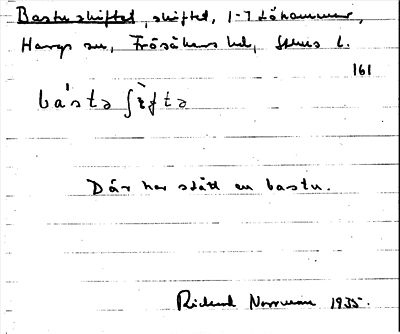 Bastuskiftet, skiftet, 1-7 Låhammar,
Hargs sn, Frösåkers hd, Sthms l.
161
ba'stə ʃìftə
Där har stått en bastu.
Rickard Norrman 1935.